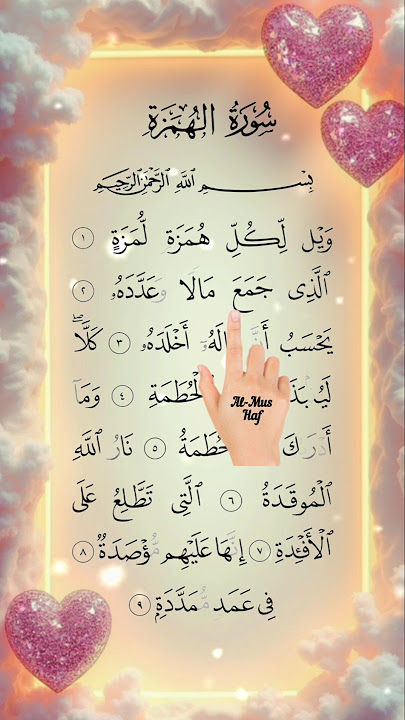 سُورَةُ الهُمَزَة
بِسْمِ ٱللَّهِ ٱلرَّحْمَٰنِ ٱلرَّحِيمِ
وَيْلٌ لِّكُلِّ هُمَزَةٍ لُّمَزَةٍ ١
ٱلَّذِى جَمَعَ مَالًا وَعَدَّدَهُۥ ٢
يَحْسَبُ أَخْلَدَهُۥ ٣ كَلَّاۖ
ٱلْحُطَمَةِ ٤ وَمَآ
أَدْرَىٰكَ ٥ نَارُ ٱللَّهِ
ٱلْمُوقَدَةُ ٦ ٱلَّتِى تَطَّلِعُ عَلَى
ٱلْأَفْـِٔدَةِ ٧ إِنَّهَا عَلَيْهِم مُّؤْصَدَةٌ ٨
فِى عَمَدٍ مُّمَدَّدَةٍۭ ٩
Al-Mus
Haf